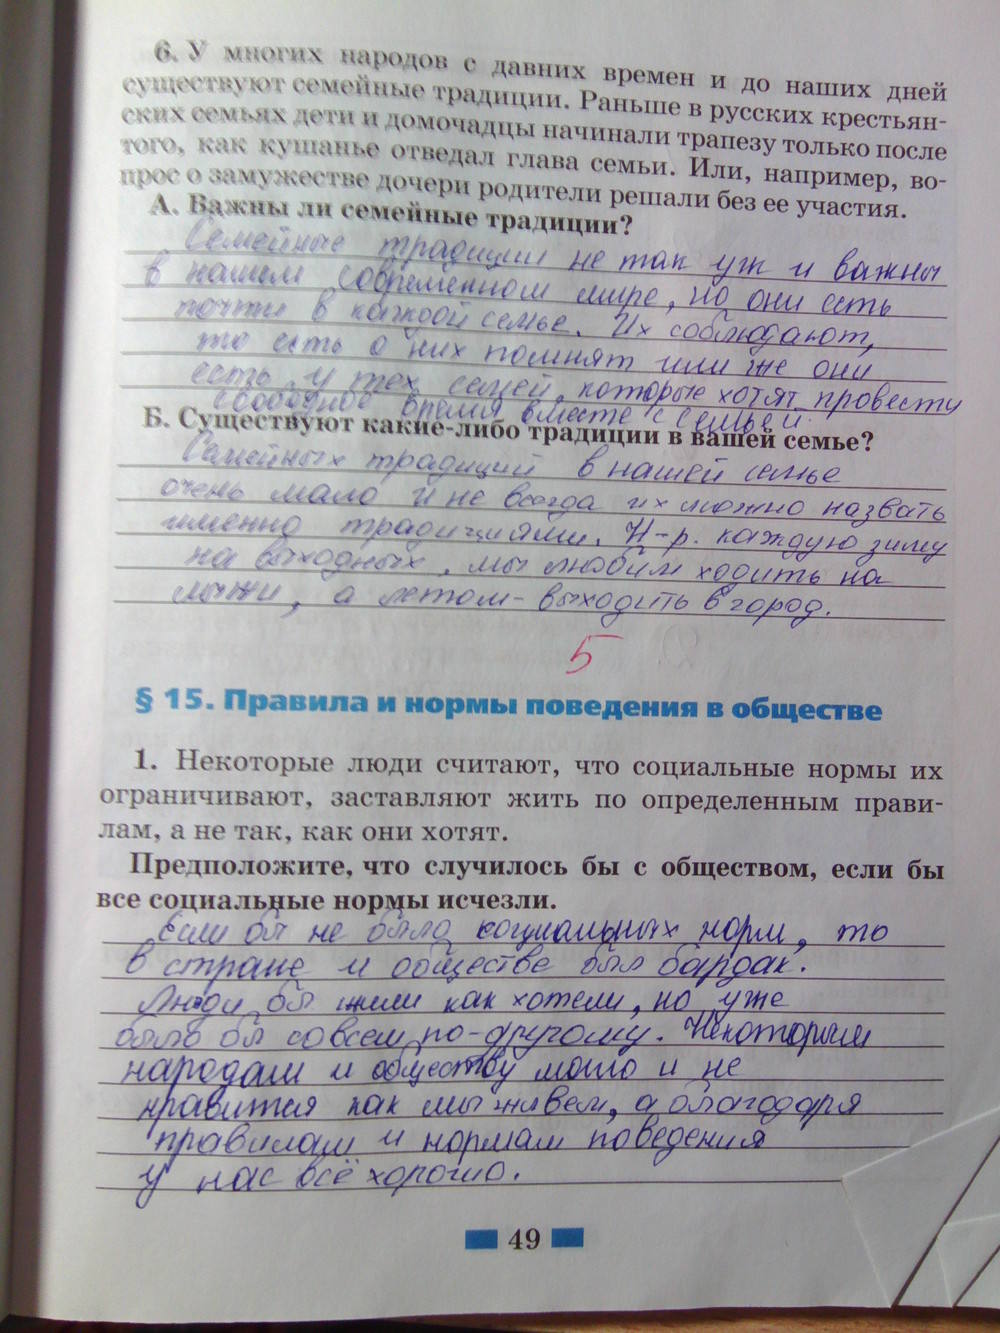 6. У многих народов с давних времен и до наших дней
существуют семейные традиции. Раньше в русских крестьян-
ских семьях дети и домочадцы начинали трапезу только после
того, как кушанье отведал глава семьи. Или, например, во-
прос о замужестве дочери родители решали без ее участия.
А. Важны ли семейные традиции?
Семейные традиции не так уж и важны
в нашем современном мире, но они есть
почти в каждой семье. Их соблюдают,
то есть о них помнят или же они
есть у тех семей, которые хотят провести
свободное время вместе с семьей.
Б. Существуют какие-либо традиции в вашей семье?
Семейных традиций в нашей семье
очень мало и не всегда их можно назвать
именно традициями. Н-р. каждую зиму
на выходных, мы любим ходить на
лыжи, а летом - выходить в город.
5
§ 15. Правила и нормы поведения в обществе
1. Некоторые люди считают, что социальные нормы их
ограничивают, заставляют жить по определенным прави-
лам, а не так, как они хотят.
Предположите, что случилось бы с обществом, если бы
все социальные нормы исчезли.
Если бы не было социальных норм, то
в стране и обществе был бардак.
Люди бы жили как хотели, но уже
было бы совсем по-другому. Некоторым
народам и обществу мало и не
нравится как мы живем, а благодаря
правилам и нормам поведения
у нас всё хорошо.
49